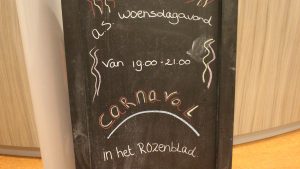 a.s. woensdagavond
van 19.00 - 21.00
CARNAVAL
in het ROZenblad.